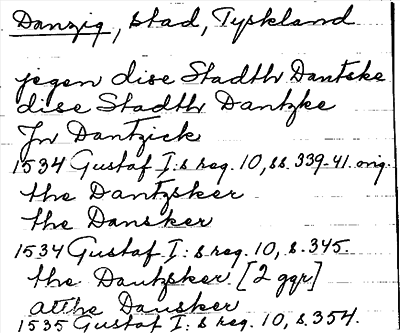 Danzig, stad, Tyskland
jegen dise Stadth Dantske
dise Stadth Dantzke
In Dantzick
1534 Gustaf I:s reg. 10, ss. 339-41. orig.
the Dantzsker
the Dansker
1534 Gustaf I:s reg. 10, s. 345.
the Dantzsker [2 ggr]
atthe Dansker
1535 Gustaf I:s reg. 10, s. 354.